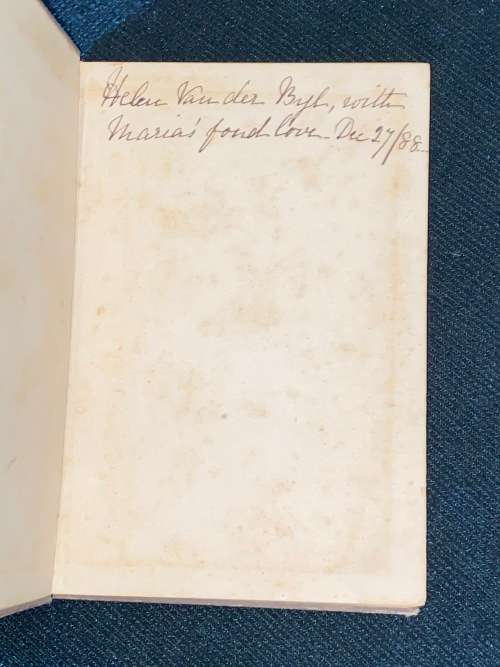 Helen Van der Byl, with
Maria's fond love Dec 27/88